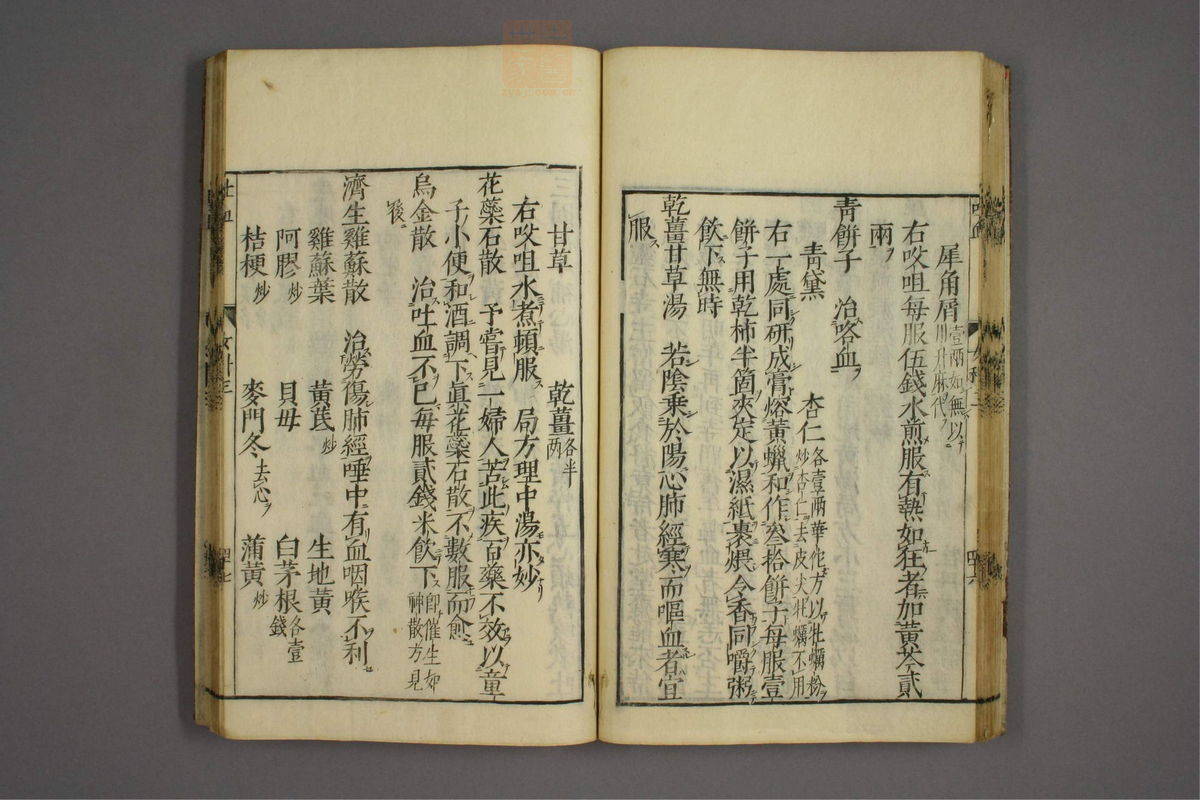 犀角屑壹兩如無以川升麻代
右㕮咀每服伍錢水煎服有熱如狂者加黃芩貳
兩
青餅子　治咯血
青黛　杏仁各壹兩華佗方以牡蠣粉炒杏仁去皮尖牡蠣不用
右一處同研成膏熔黃蠟和作叁拾餅子每服壹
餅子用乾柿半箇夾定以濕紙裹煨令香同嚼粥
飲下無時
乾薑甘草湯　若陰乘於陽心肺經寒而嘔血者宜
服
甘草　乾薑各半兩
右㕮咀水煮頓服　局方理中湯亦妙
花蘂石散　予嘗見一婦人苦此疾百藥不效以童
子小便和酒調下眞花蘂石散不數服而愈
烏金散　治吐血不已每服貳錢米飲下即催生如神散方見
後
濟生雞蘇散　治勞傷肺經唾中有血咽喉不利
雞蘇葉　黃芪炒　生地黃
阿膠炒　貝母　白茅根各壹錢
桔梗炒　麥門冬去心　蒲黃炒